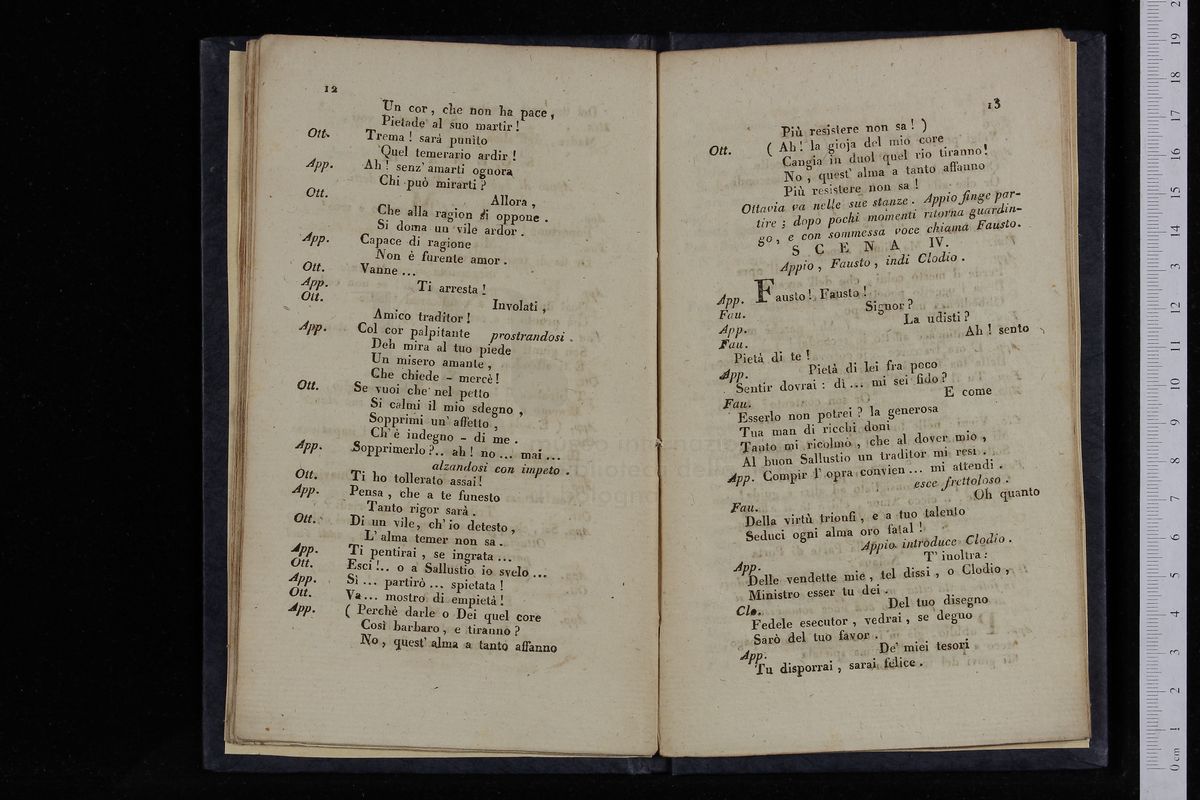 12
Un cor, che non ha pace,
Pietade al suo martir!
Ott. Trema! sarà punito
Quel temerario ardir!
App. Ah! senz' amarti ognora
Chi può mirarti?
Ott. Allora,
Che alla ragion si oppone.
Si doma un vile ardor.
App. Capace di ragione
Non è furente amor.
Ott. Vanne...
App. Ti arresta!
Ott. Involati,
Amico traditor!
App. Col cor palpitante prostrandosi.
Deh mira al tuo piede
Un misero amante,
Che chiede - mercè!
Ott. Se vuoi che nel petto
Si calmi il mio sdegno,
Sopprimi un' affetto,
Ch' è indegno - di me.
App. Sopprimerlo?.. ah! no... mai...
alzandosi con impeto.
Ott. Ti ho tollerato assai!
App. Pensa, che a te funesto
Tanto rigor sarà.
Ott. Di un vile, ch' io detesto,
L' alma temer non sa.
App. Ti pentirai, se ingrata...
Ott. Esci!.. o a Sallustio io svelo...
App. Sì... partirò... spietata!
Ott. Va... mostro di empietà!
App. ( Perchè darle o Dei quel core
Così barbaro, e tiranno?
No, quest' alma a tanto affanno
13
Più resistere non sa! )
Ott. ( Ah! la gioja del mio core
Cangia in duol quel rio tiranno!
No, quest' alma a tanto affanno
Più resistere non sa!
Ottavia va nelle sue stanze. Appio finge par-
tire; dopo pochi momenti ritorna guardin-
go, e con sommessa voce chiama Fausto.
SCENA IV.
Appio, Fausto, indi Clodio.
App. Fausto! Fausto!
Fau. Signor?
App. La udisti?
Fau. Ah! sento
Pietà di te!
App. Pietà di lei fra poco
Sentir dovrai: dì... mi sei fido?
Fau. E come
Esserlo non potrei? la generosa
Tua man di ricchi doni
Tanto mi ricolmò, che al dover mio,
Al buon Sallustio un traditor mi resi.
App. Compir l' opra convien... mi attendi.
esce frettoloso.
Fau. Oh quanto
Della virtù trionfi, e a tuo talento
Seduci ogni alma oro fatal!
Appio introduce Clodio.
App. T' inoltra:
Delle vendette mie, tel dissi, o Clodio,
Ministro esser tu dei.
Clo. Del tuo disegno
Fedele esecutor, vedrai, se degno
Sarò del tuo favor.
App. De' miei tesori
Tu disporrai, sarai felice.